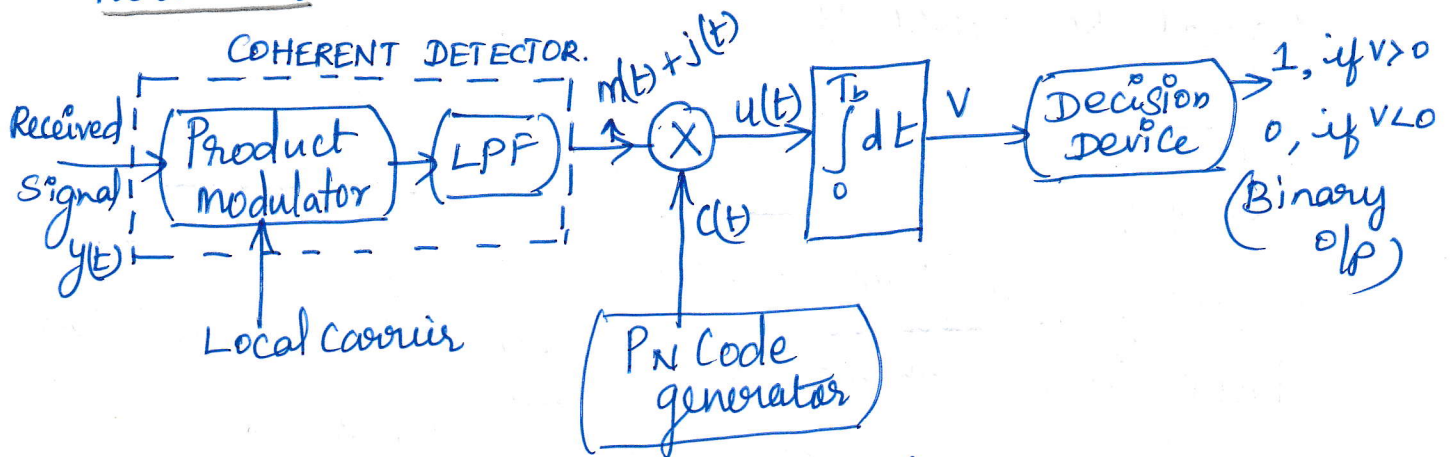 COHERENT DETECTOR.
Received
Signal
y(t)
Product
modulator
LPF
m(t)+j(t)
X
u(t)
Tb
∫dt
0
V
Decision
Device
1, if V>0
0, if V<0
(Binary
O/P)
c(t)
Local Carrier
PN Code
generator